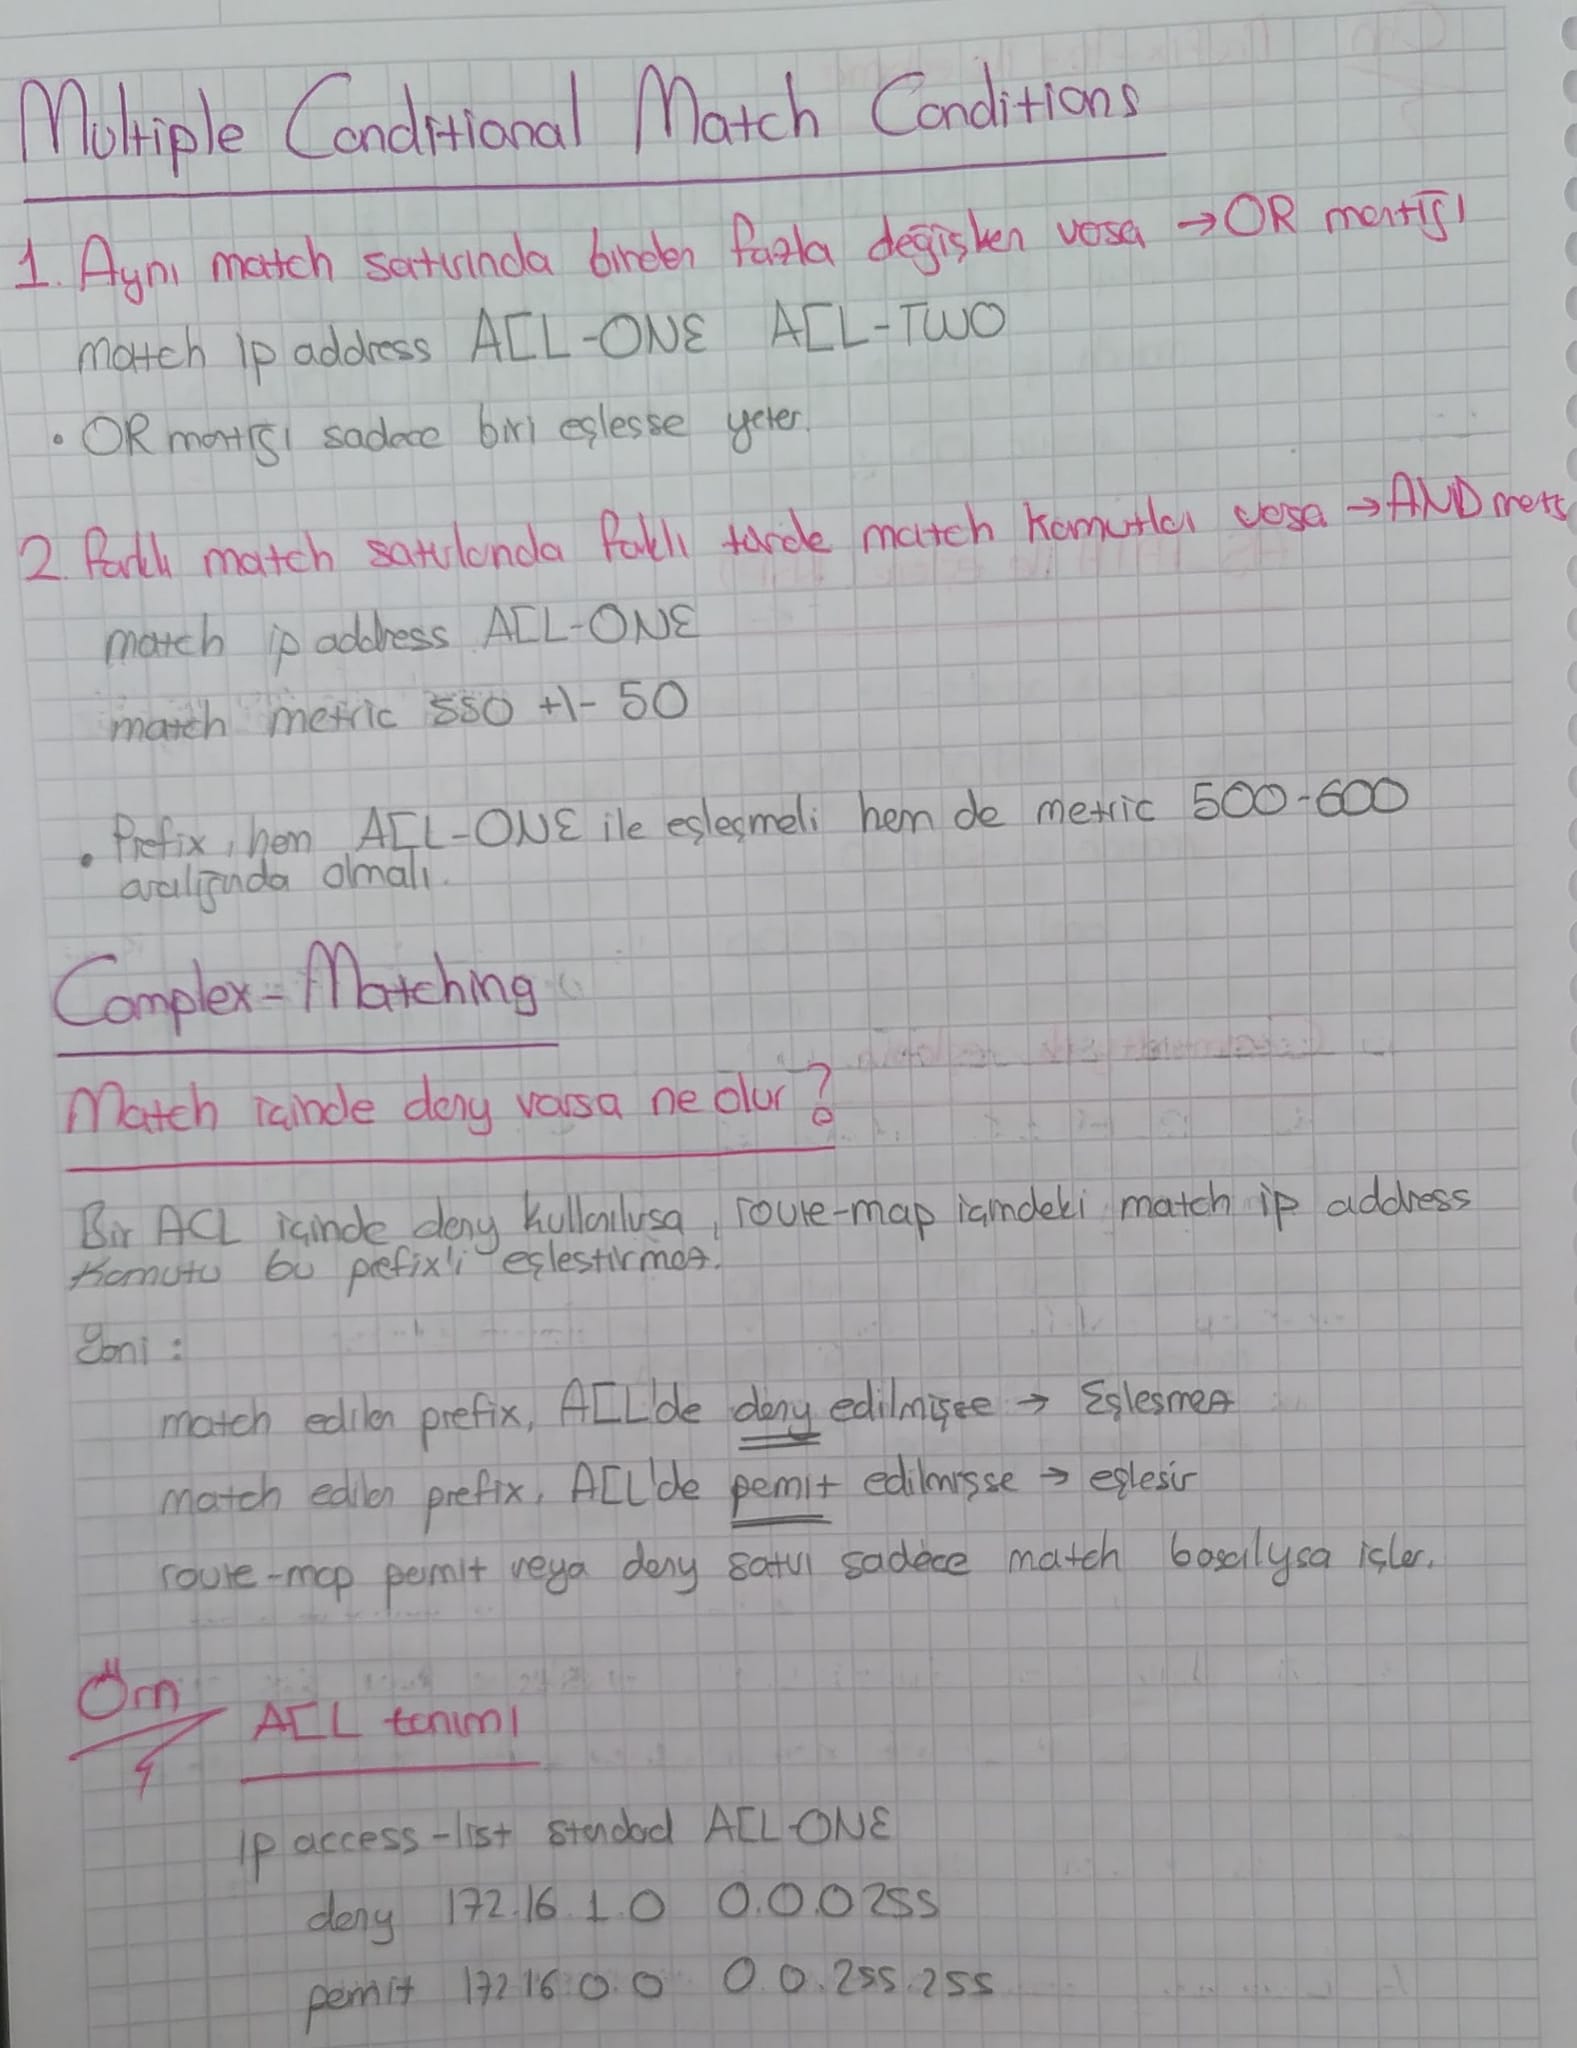 Multiple Conditional Match Conditions
1. Aynı match satırında birden fazla değişken varsa → OR mantığı
match ip address ACL-ONE ACL-TWO
• OR mantığı sadece biri eşlesse yeter.
2. Farklı match satırlarında farklı türde match komutları varsa → AND mantı
match ip address ACL-ONE
match metric 550 +\- 50
• Prefix, hem ACL-ONE ile eşleşmeli hem de metric 500-600
aralığında olmalı.
Complex-Matching
Match içinde deny varsa ne olur?
Bir ACL içinde deny kullanılırsa, route-map içindeki match ip address
komutu bu prefix'i eşlestirmez.
Yani :
match edilen prefix, ACL'de deny edilmişse → Eşlesmez
match edilen prefix, ACL'de pemit edilmişse → eşlesir
route-map pemit veya deny satırı sadece match başarılıysa işler.
Örn
ACL tanımı
ip access-list standad ACL-ONE
deny 172.16.1.0 0.0.0 255
pemit 172 16.0.0 0.0.255.255